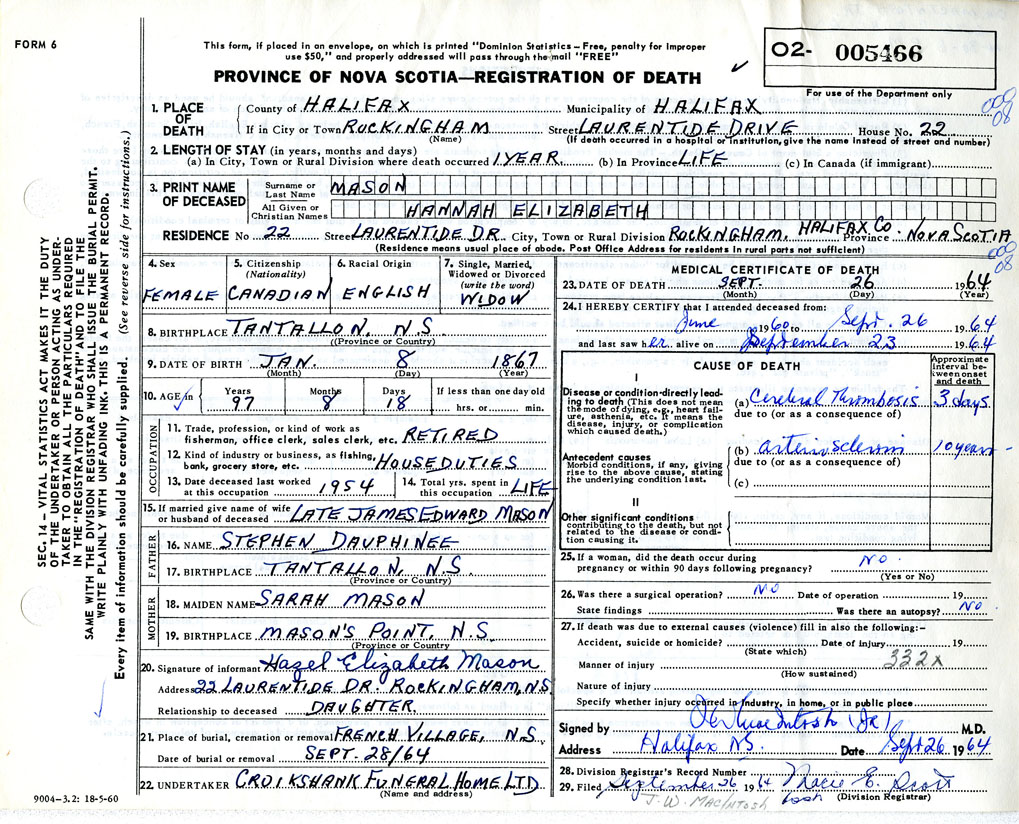 FORM 6
This form, if placed in an envelope, on which is printed "Dominion Statistics – Free, penalty for improper
use $50," and properly addressed will pass through the mail "FREE"
PROVINCE OF NOVA SCOTIA—REGISTRATION OF DEATH
O2- 005466
For use of the Department only
000
08
1. PLACE OF DEATH
County of HALIFAX Municipality of HALIFAX
If in City or Town ROCKINGHAM Street LAURENTIDE DRIVE House No. 22
(Name) (If death occurred in a hospital or institution, give the name instead of street and number)
2. LENGTH OF STAY (in years, months and days)
(a) In City, Town or Rural Division where death occurred 1 YEAR (b) In Province LIFE (c) In Canada (if immigrant)
3. PRINT NAME OF DECEASED
Surname or Last Name MASON
All Given or Christian Names HANNAH ELIZABETH
RESIDENCE No 22 Street LAURENTIDE DR. City, Town or Rural Division ROCKINGHAM, HALIFAX CO. Province NOVA SCOTIA
(Residence means usual place of abode. Post Office Address for residents in rural parts not sufficient)
000
08
4. Sex FEMALE
5. Citizenship (Nationality) CANADIAN
6. Racial Origin ENGLISH
7. Single, Married, Widowed or Divorced (write the word) WIDOW
8. BIRTHPLACE TANTALLON, N.S
(Province or Country)
9. DATE OF BIRTH JAN. 8 1867
(Month) (Day) (Year)
10. AGE in Years 97 Months 8 Days 18 If less than one day old hrs. or min.
OCCUPATION
11. Trade, profession, or kind of work as
fisherman, office clerk, sales clerk, etc. RETIRED
12. Kind of industry or business, as fishing,
bank, grocery store, etc. HOUSEDUTIES
13. Date deceased last worked at this occupation 1954
14. Total yrs. spent in this occupation LIFE
15. If married give name of wife or husband of deceased LATE JAMES EDWARD MASON
FATHER
16. NAME STEPHEN DAUPHINEE
17. BIRTHPLACE TANTALLON, N.S.
(Province or Country)
MOTHER
18. MAIDEN NAME SARAH MASON
19. BIRTHPLACE MASON'S POINT, N.S.
(Province or Country)
20. Signature of informant Hazel Elizabeth Mason
Address 22 LAURENTIDE DR. ROCKINGHAM, N.S
Relationship to deceased DAUGHTER
21. Place of burial, cremation or removal FRENCH VILLAGE, N.S.
Date of burial or removal SEPT. 28/64
22. UNDERTAKER CROIKSHANK FUNERAL HOME LTD.
(Name and address)
MEDICAL CERTIFICATE OF DEATH
23. DATE OF DEATH SEPT. 26 1964
(Month) (Day) (Year)
24. I HEREBY CERTIFY that I attended deceased from:
June 1960 to Sept. 26 1964
and last saw her alive on September 23 1964
CAUSE OF DEATH
Approximate interval between onset and death
I
Disease or condition directly leading to death (This does not mean
the mode of dying, e.g., heart failure, asthenia, etc. It means the
disease, injury, or complication which caused death.)
(a) Cerebral Thrombosis 3 days
due to (or as a consequence of)
Antecedent causes
Morbid conditions, if any, giving rise to the above cause, stating
the underlying condition last.
(b) arteriosclerosis 10 years
due to (or as a consequence of)
(c)
II
Other significant conditions
contributing to the death, but not related to the disease or condition causing it.
25. If a woman, did the death occur during
pregnancy or within 90 days following pregnancy? NO.
(Yes or No)
26. Was there a surgical operation? NO Date of operation 19
State findings Was there an autopsy? NO
27. If death was due to external causes (violence) fill in also the following:–
Accident, suicide or homicide? Date of injury 19
(State which)
332x
Manner of injury
(How sustained)
Nature of injury
Specify whether injury occurred in industry, in home, or in public place
Signed by MacIntosh (Jr) M.D.
Address Halifax NS. Date Sept 26 1964
28. Division Registrar's Record Number
29. Filed September 26 1964 E. Scott
J. W. MACINTOSH (Division Registrar)
SEC. 14 – VITAL STATISTICS ACT MAKES IT THE DUTY
OF THE UNDERTAKER OR PERSON ACTING AS UNDER-
TAKER TO OBTAIN ALL THE PARTICULARS REQUIRED
IN THE "REGISTRATION OF DEATH" AND TO FILE THE
SAME WITH THE DIVISION REGISTRAR WHO SHALL ISSUE THE BURIAL PERMIT.
WRITE PLAINLY WITH UNFADING INK. THIS IS A PERMANENT RECORD.
Every item of information should be carefully supplied. (See reverse side for instructions.)
9004-3.2: 18-5-60